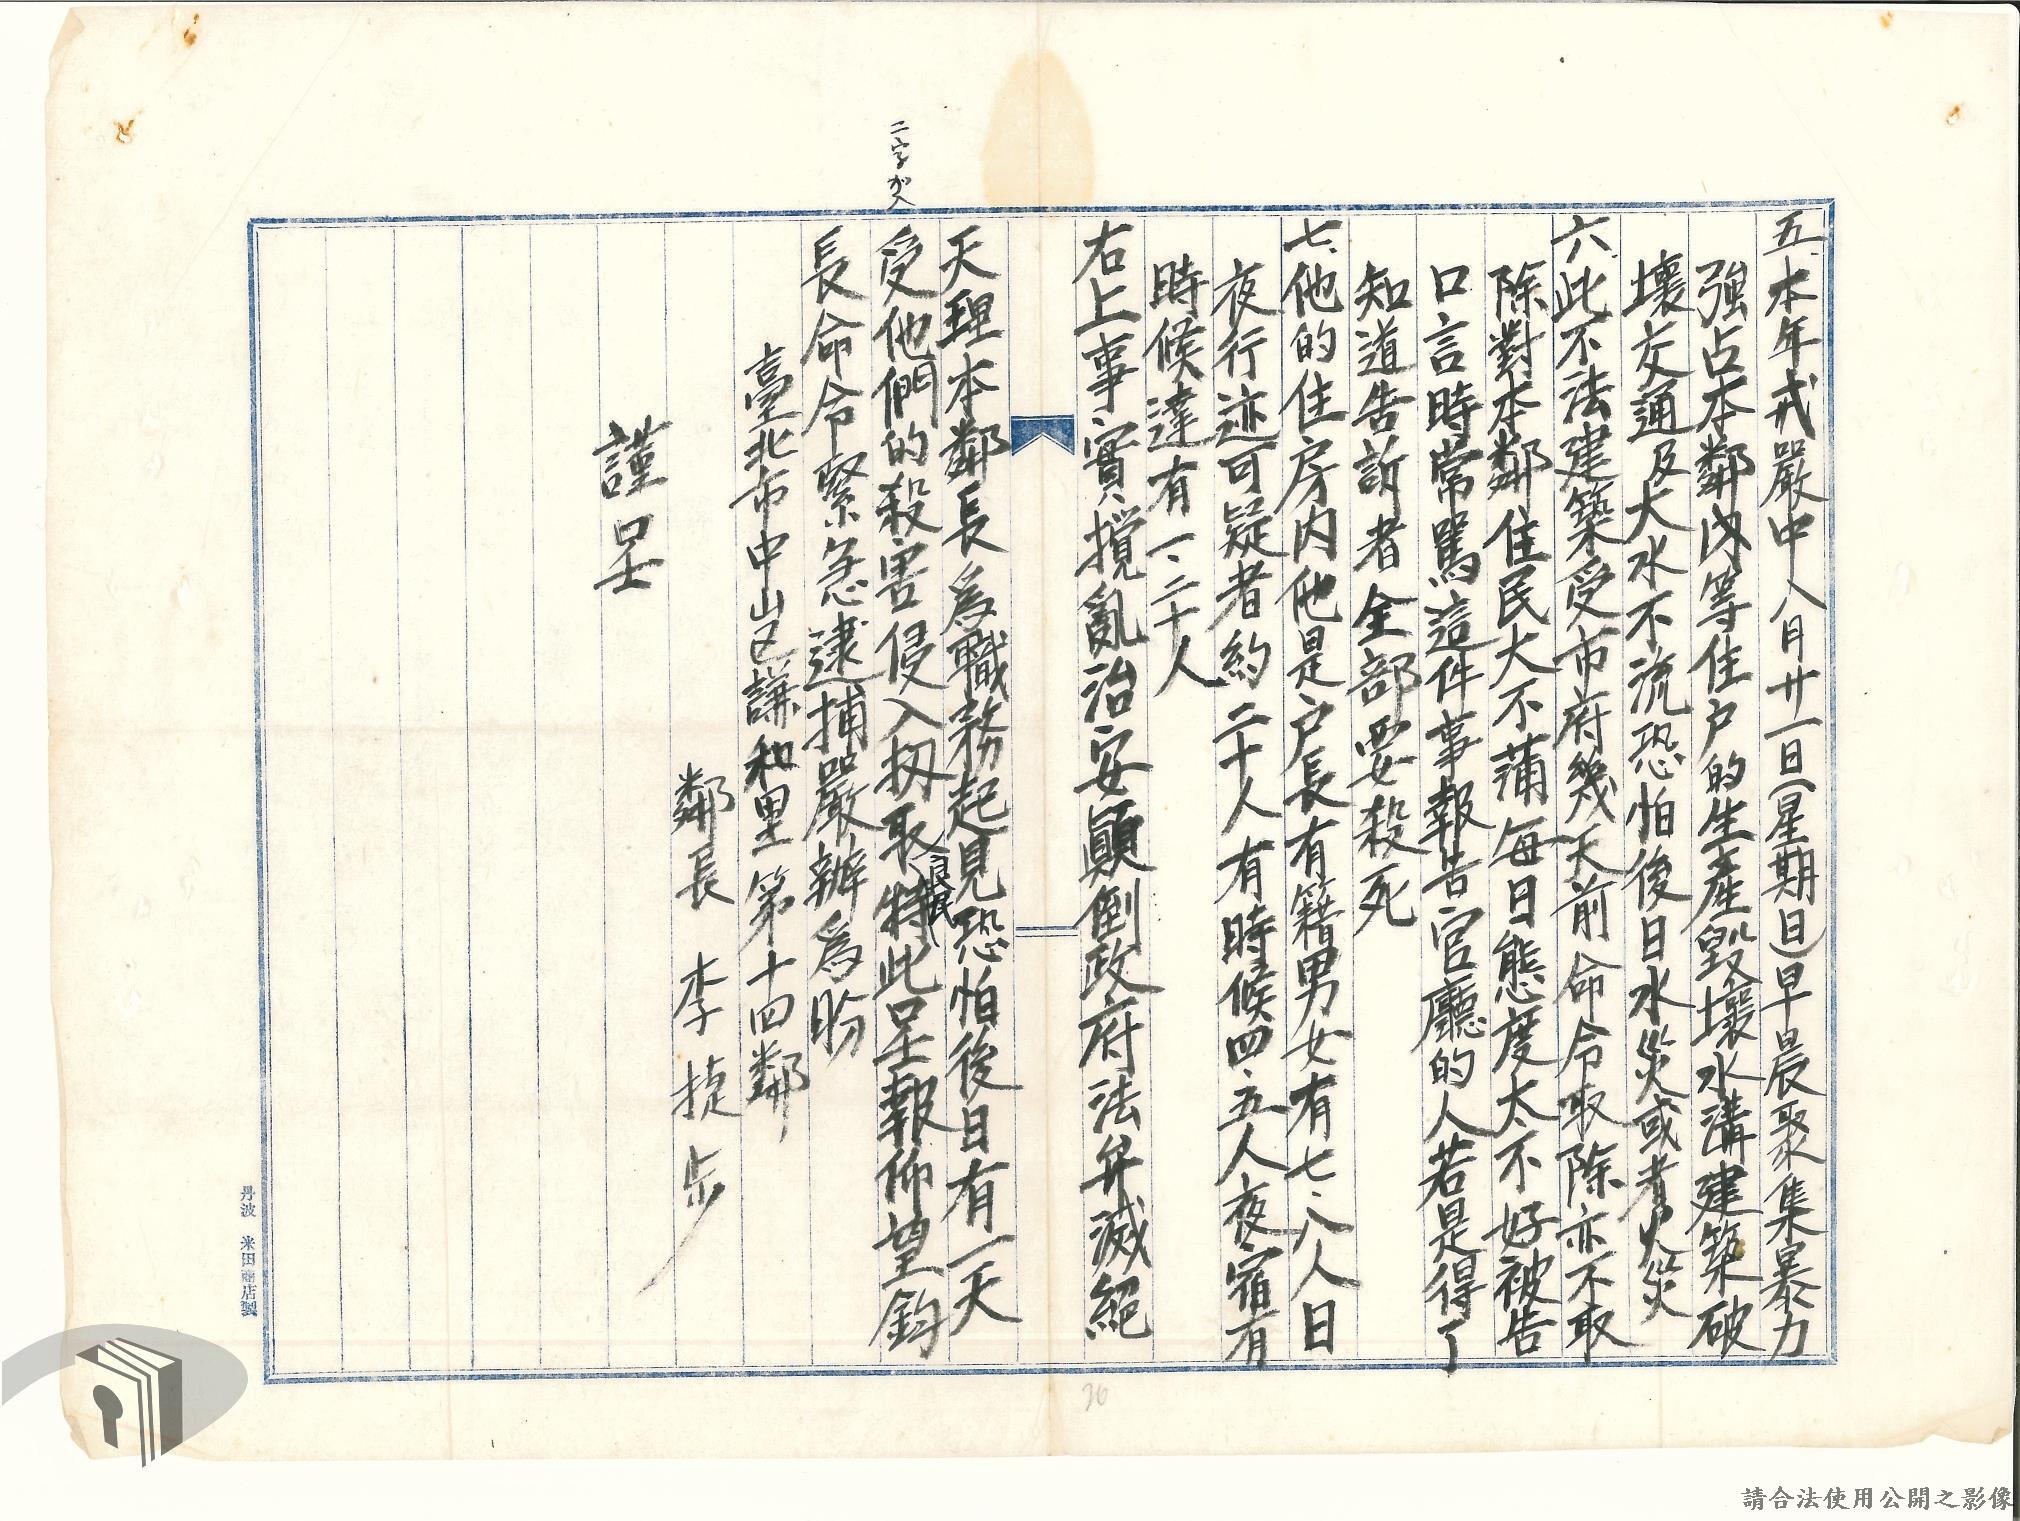 五、本年戒嚴中八月廿一日(星期日)早晨聚集暴力
強占本鄰內等住户的生產毀壞水溝建築破
壞交通及大水不流恐怕後日水災或者火災
六、此不法建築受市府幾天前命令取除亦不取
除對本鄰住民大不蒲每日態度太不好被告
口言時常罵這件事報告官廳的人若是得了
知道告訴者全部要殺死
七、他的住房内他是户長有籍男女有七、八人日
夜行迹可疑者約二十人有時候四、五人夜宿有
時候達有一、二十人
右上事實攪亂治安顛倒政府法弁滅絕
天理本鄰長為職務起見恐怕後日有一天
二字加入
受他們的殺害侵入扨取(良民)特此呈報仰望鈞
長命令緊急逮捕嚴辦為盼
臺北市中山区謙和里第十四鄰
鄰長 李捷步
謹呈
丹波 米田商店製
36
請合法使用公開之影像